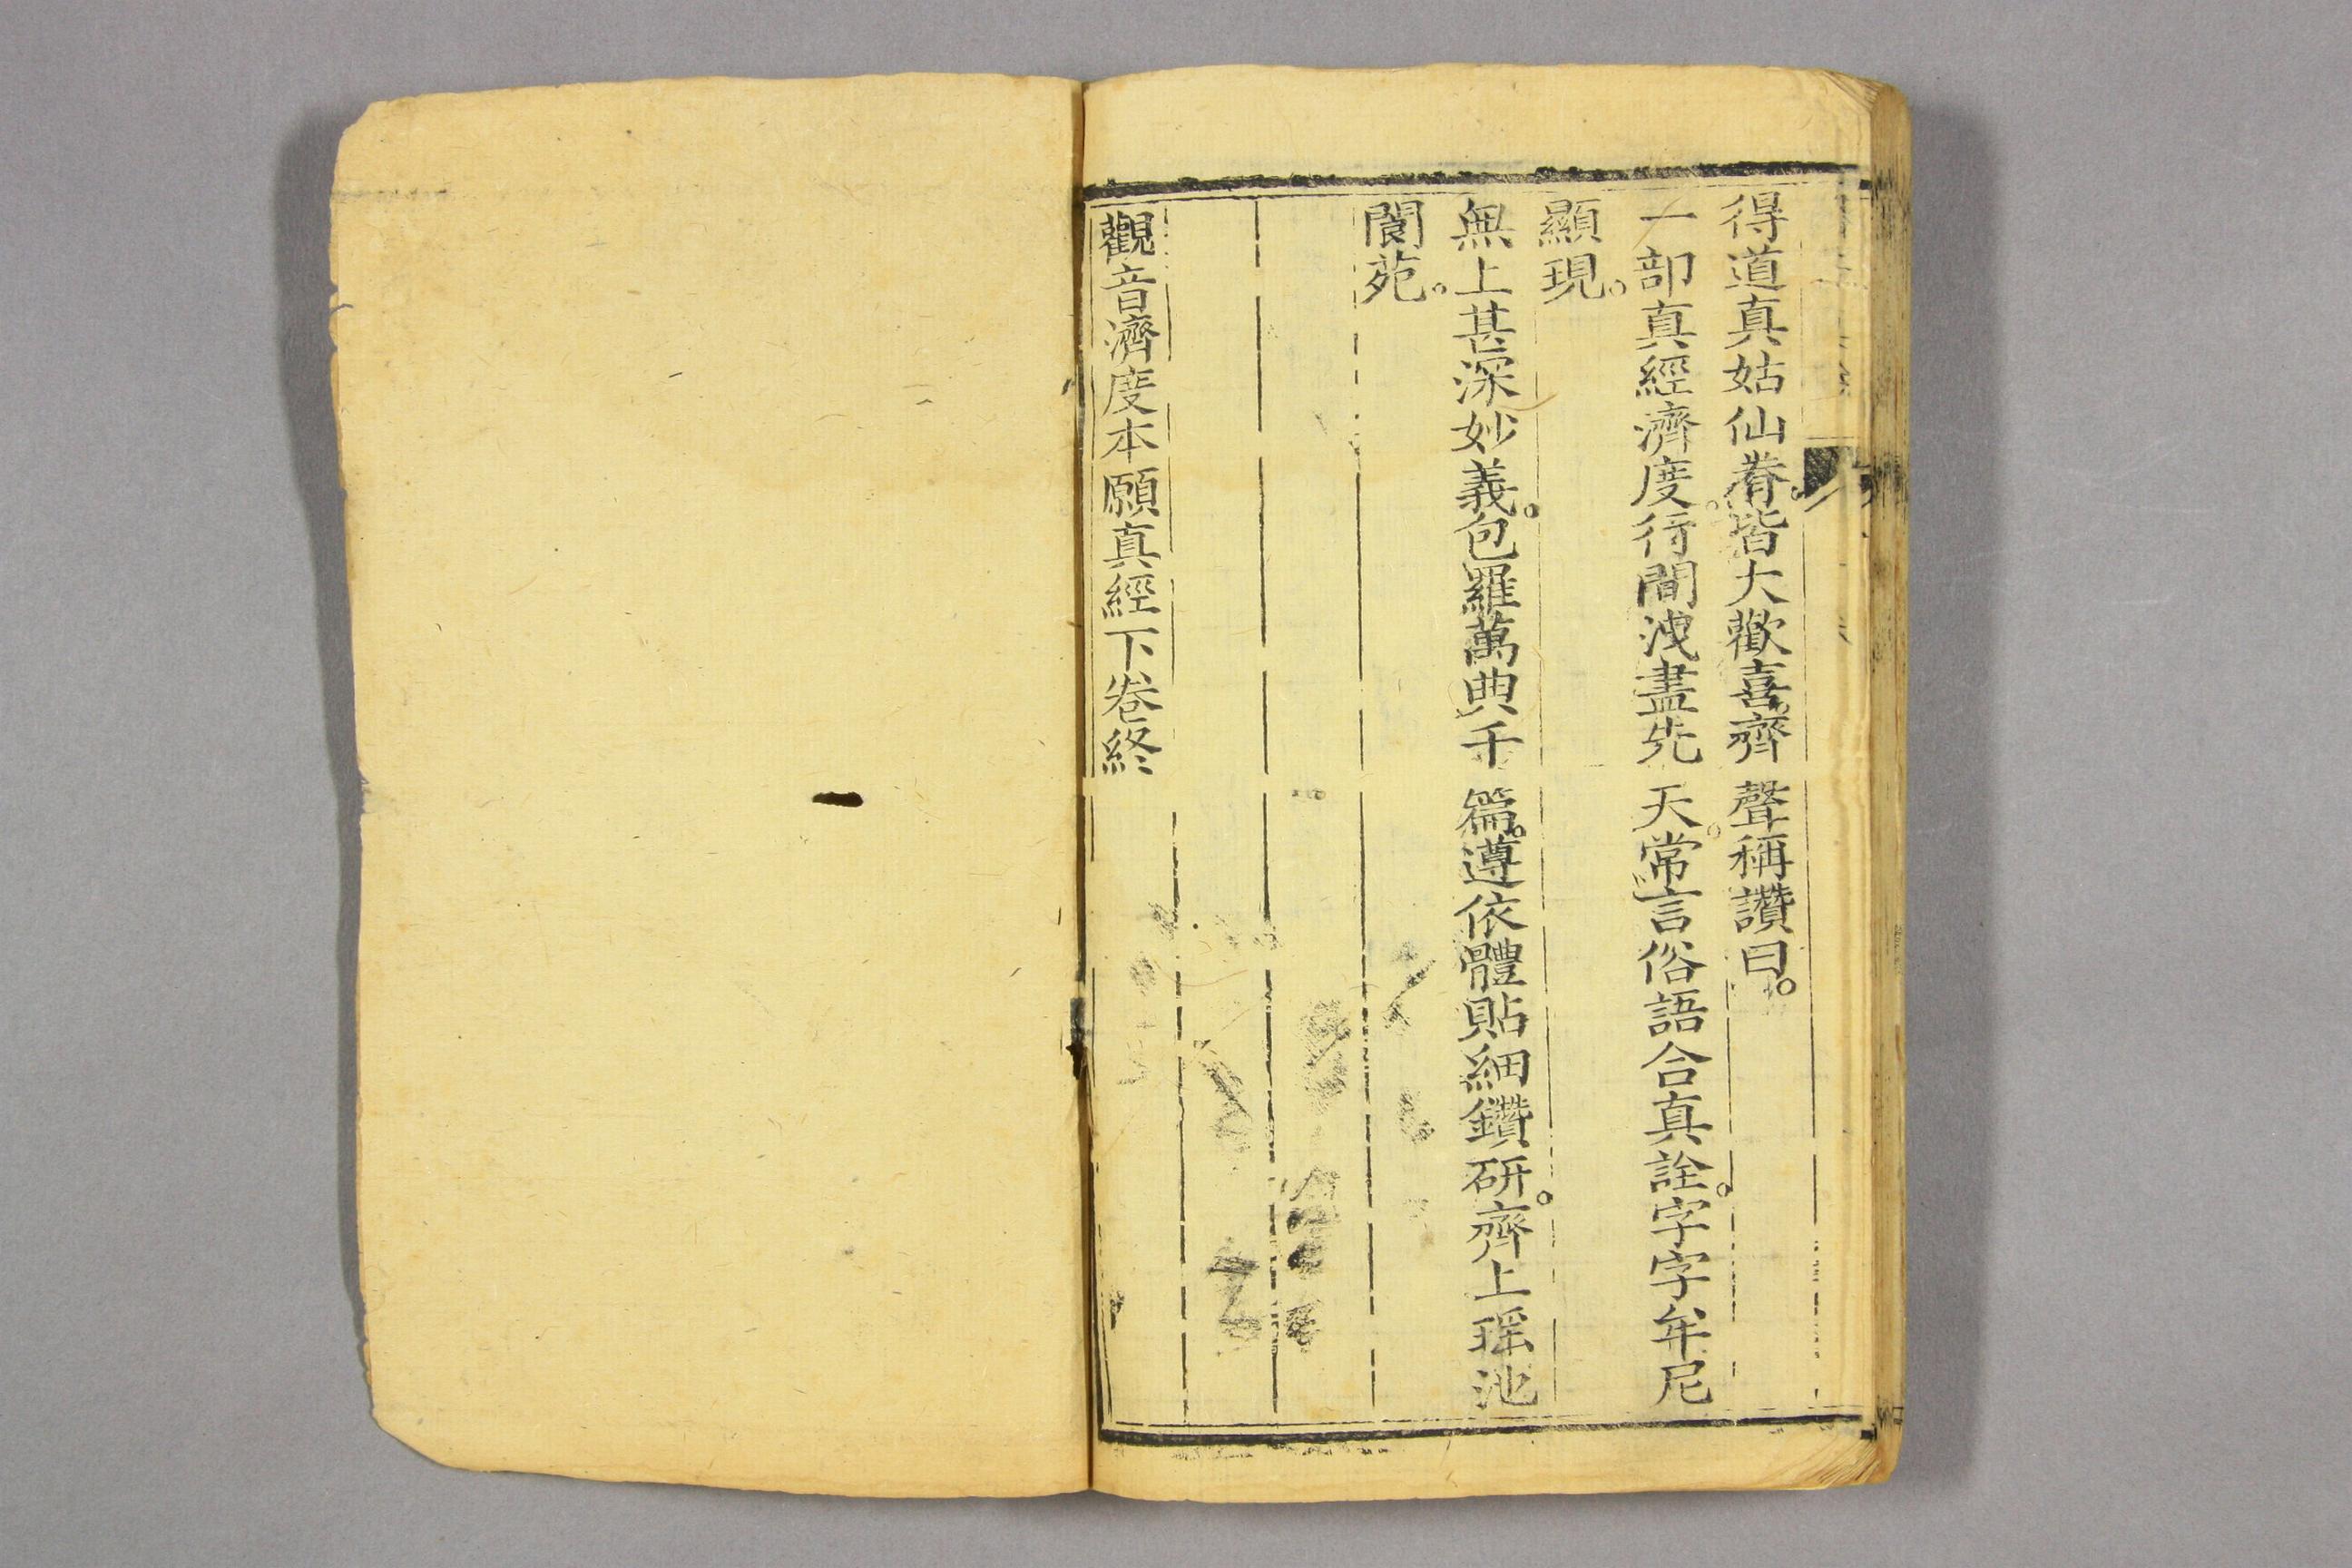 得道真姑仙眷。皆大歡喜。齊聲稱讚曰。
一部真經濟度。行間洩盡先天。常言俗語合真詮。字字牟尼
顯現。
無上甚深妙義。包羅萬典千篇。遵依體貼細鑽研。齊上瑶池
閬苑。
觀音濟度本願真經下卷終